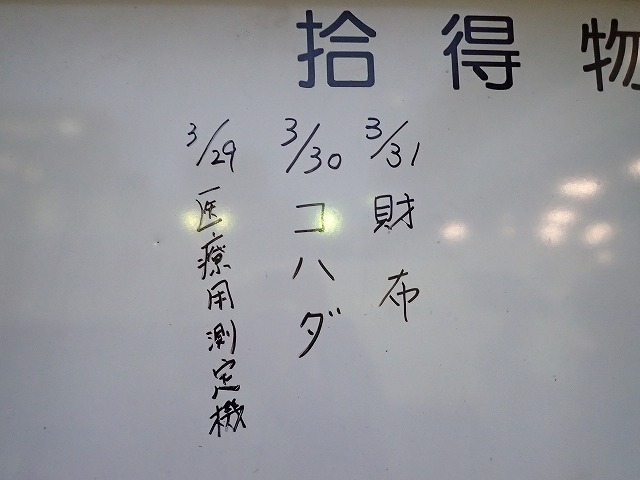 拾得物
3/31
財布
3/30
コハダ
3/29
医療用測定機